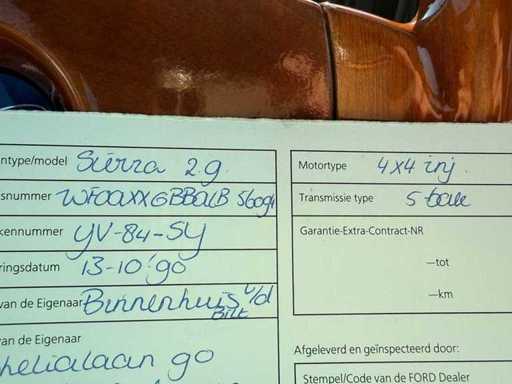 ntype/model Sierra 2.9
Motortype 4x4 inj.
snummer WFOAXXGBBALB
Transmissie type 5
kennummer YV-84-SY
Garantie-Extra-Contract-NR
ringsdatum 13-10-'90
—tot
van de Eigenaar Binnenhuis v/d
Bilt
—km
van de Eigenaar
helialaan 90
Afgeleverd en geïnspecteerd door:
Stempel/Code van de FORD Dealer